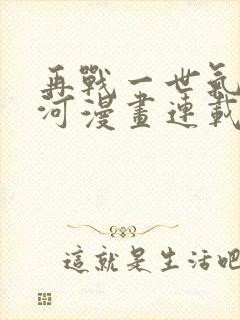 再戰一世氣
河漫畫連載
這就是生活吧